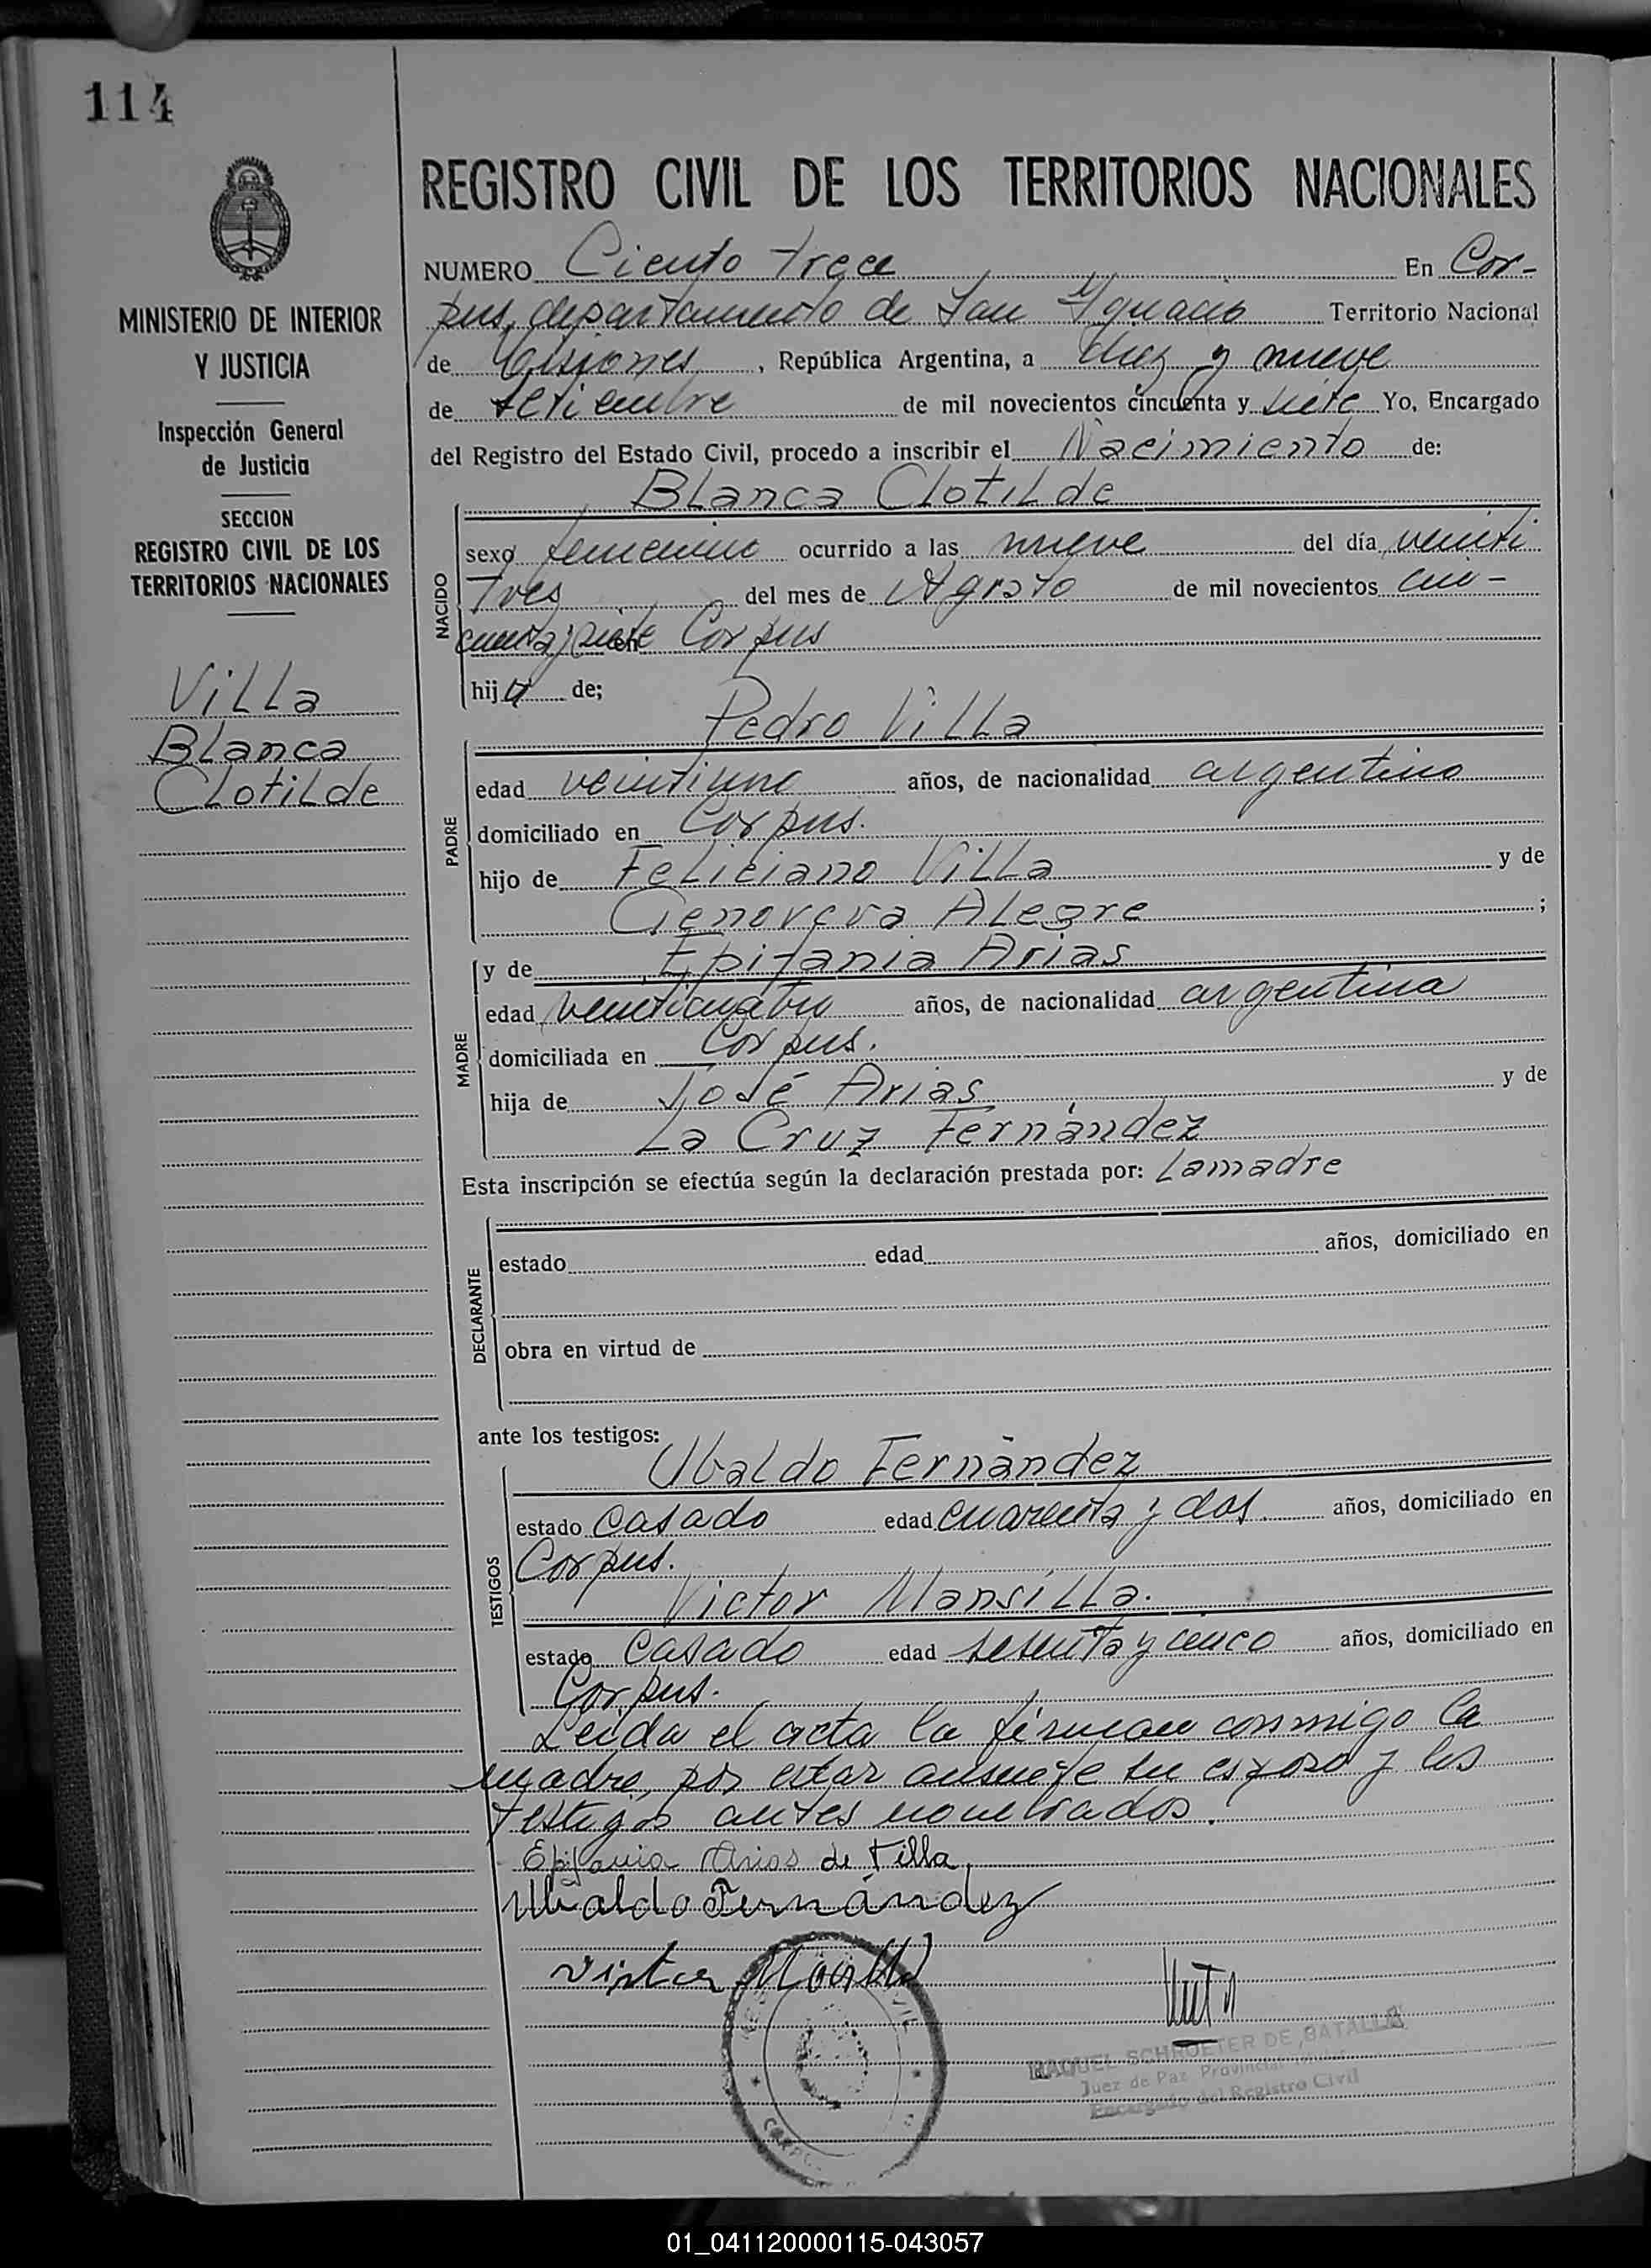 114
MINISTERIO DE INTERIOR
Y JUSTICIA
Inspección General
de Justicia
SECCION
REGISTRO CIVIL DE LOS
TERRITORIOS NACIONALES
Villa
Blanca
Clotilde
REGISTRO CIVIL DE LOS TERRITORIOS NACIONALES
NUMERO Ciento trece En Cor-
pus, departamento de San Ygnacio Territorio Nacional
de Misiones, República Argentina, a diez y nueve
de setiembre de mil novecientos cincuenta y siete Yo, Encargado
del Registro del Estado Civil, procedo a inscribir el Nacimiento de:
Blanca Clotilde
NACIDO
sexo femenino ocurrido a las nueve del día veinti
tres del mes de Agosto de mil novecientos cin-
cuenta y siete Corpus
hija de;
Pedro Villa
PADRE
edad veintiuno años, de nacionalidad argentino
domiciliado en Corpus.
hijo de Feliciano Villa y de
Genoveva Alegre ;
y de Epifania Arias
MADRE
edad veinticuatro años, de nacionalidad argentina
domiciliada en Corpus.
hija de José Arias y de
La Cruz Fernández
Esta inscripción se efectúa según la declaración prestada por: La madre
DECLARANTE
estado edad años, domiciliado en
obra en virtud de
ante los testigos:
Ubaldo Fernández
TESTIGOS
estado casado edad cuarenta y dos años, domiciliado en
Corpus.
Victor Mansilla.
estado casado edad sesenta y cinco años, domiciliado en
Corpus.
Leida el acta la firman conmigo la
madre, por estar ausente su esposo y los
testigos antes nombrados.
Epifania Arias de Villa
Ubaldo Fernández
RAQUEL SCHROETER DE BATALLA
Juez de Paz Provincial
Encargado del Registro Civil
01_041120000115-043057